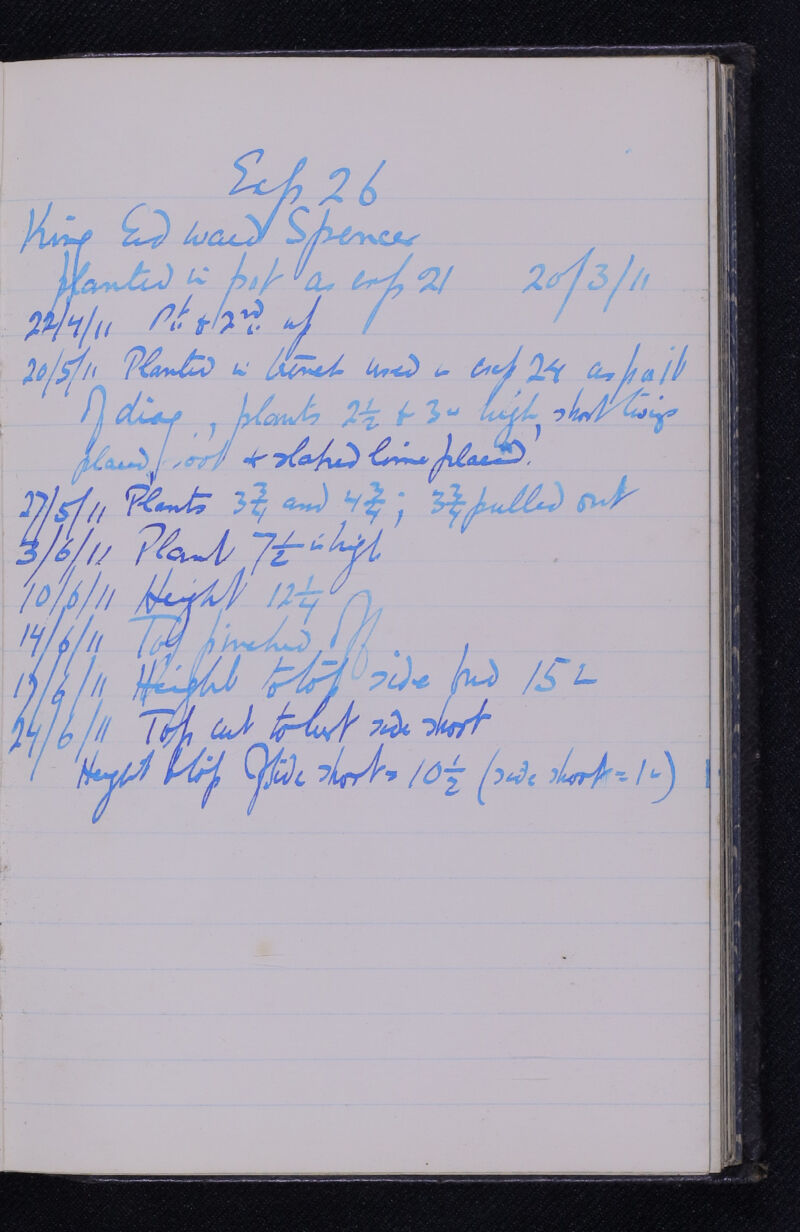 Exp 26
King Edward Spencer
planted in pot as exp 21 20/3/11
22/4/11 1st & 2nd up
20/5/11 Planted in trench used in exp 24 as pa
of diag, plants 2½ & 3" high, short twigs
placed, soot & slaked lime placed.
27/5/11 Plants 3¾ and 4¾; 3¾ pulled out
3/6/11 Plant 7½ in high
10/6/11 Height 12¼
14/6/11 Top pinched off
17/6/11 Height to top side bud 15"
24/6/11 Top cut to last side shoot
Height to top of side shoot = 10½ (side shoot = 1")